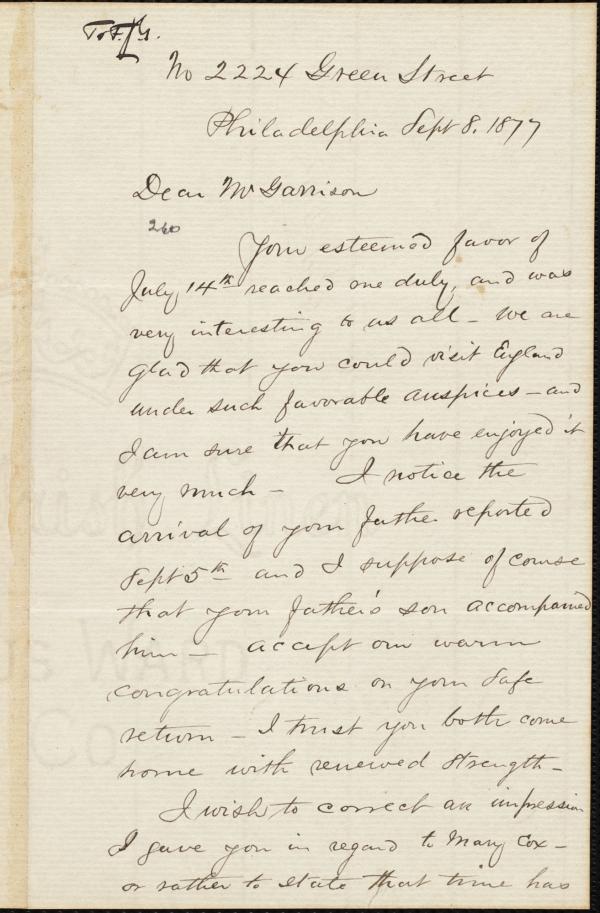 To F. J. G.
No 2224 Green Street
Philadelphia Sept 8. 1877
Dear Mr Garrison
260
Your esteemed favor of
July 14th reached me duly, and was
very interesting to us all – We are
glad that you could visit England
under such favorable auspices – and
I am sure that you have enjoyed it
very much – I notice the
arrival of your father reported
Sept 5th and I suppose of course
that your father's son accompanied
him – accept our warm
congratulations on your safe
return – I trust you both come
home with renewed strength –
I wish to correct an impression
I gave you in regard to Mary Cox –
or rather to state that time has
WARD
Co